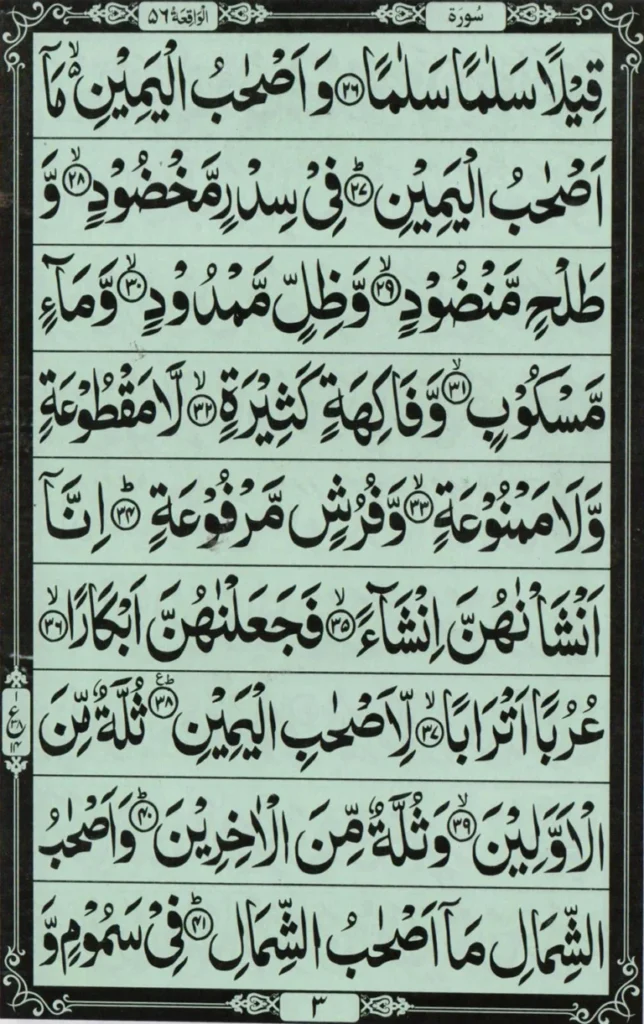 سُورَة
الْوَاقِعَة ۵۶
قِيْلًا سَلٰمًا سَلٰمًا ﴿۲۶﴾ وَ اَصْحٰبُ الْيَمِيْنِ ۙ۬ مَاۤ
اَصْحٰبُ الْيَمِيْنِ ؕ﴿۲۷﴾ فِيْ سِدْرٍ مَّخْضُوْدٍ ۙ﴿۲۸﴾ وَّ
طَلْحٍ مَّنْضُوْدٍ ۙ﴿۲۹﴾ وَّظِلٍّ مَّمْدُوْدٍ ۙ﴿۳۰﴾ وَّمَآءٍ
مَّسْكُوْبٍ ۙ﴿۳۱﴾ وَّفَاكِهَةٍ كَثِيْرَةٍ ۙ﴿۳۲﴾ لَّا مَقْطُوْعَةٍ
وَّلَا مَمْنُوْعَةٍ ۙ﴿۳۳﴾ وَّفُرُشٍ مَّرْفُوْعَةٍ ؕ﴿۳۴﴾ اِنَّاۤ
اَنْشَاْنٰهُنَّ اِنْشَآءً ۙ﴿۳۵﴾ فَجَعَلْنٰهُنَّ اَبْكَارًا ۙ﴿۳۶﴾
عُرُبًا اَتْرَابًا ۙ﴿۳۷﴾ لِّاَصْحٰبِ الْيَمِيْنِ ؕ٪﴿۳۸﴾ ثُلَّةٌ مِّنَ
۱
ع
۳۸
۱۴
الْاَوَّلِيْنَ ۙ﴿۳۹﴾ وَثُلَّةٌ مِّنَ الْاٰخِرِيْنَ ؕ﴿۴۰﴾ وَاَصْحٰبُ
الشِّمَالِ مَاۤ اَصْحٰبُ الشِّمَالِ ؕ﴿۴۱﴾ فِيْ سَمُوْمٍ وَّ
۳